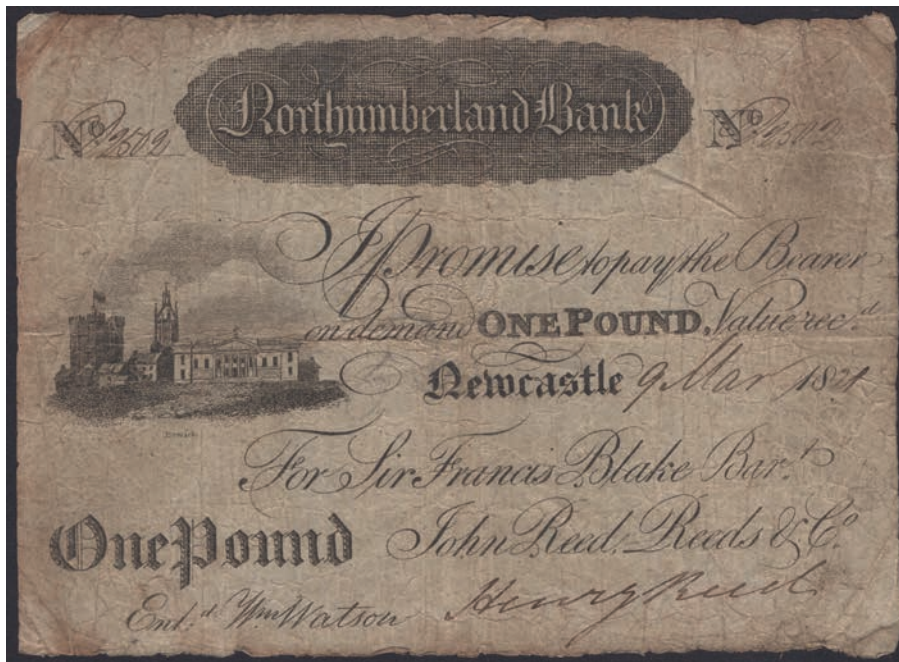 Northumberland Bank
No 2502 No 2502
I Promise to pay the Bearer
on demand ONE POUND, Value rec.d
Newcastle 9 Mar 1821
For Sir Francis Blake Bar.t
John Reed, Reeds & Co.
One Pound
Ent.d Wm Watson Henry Reed